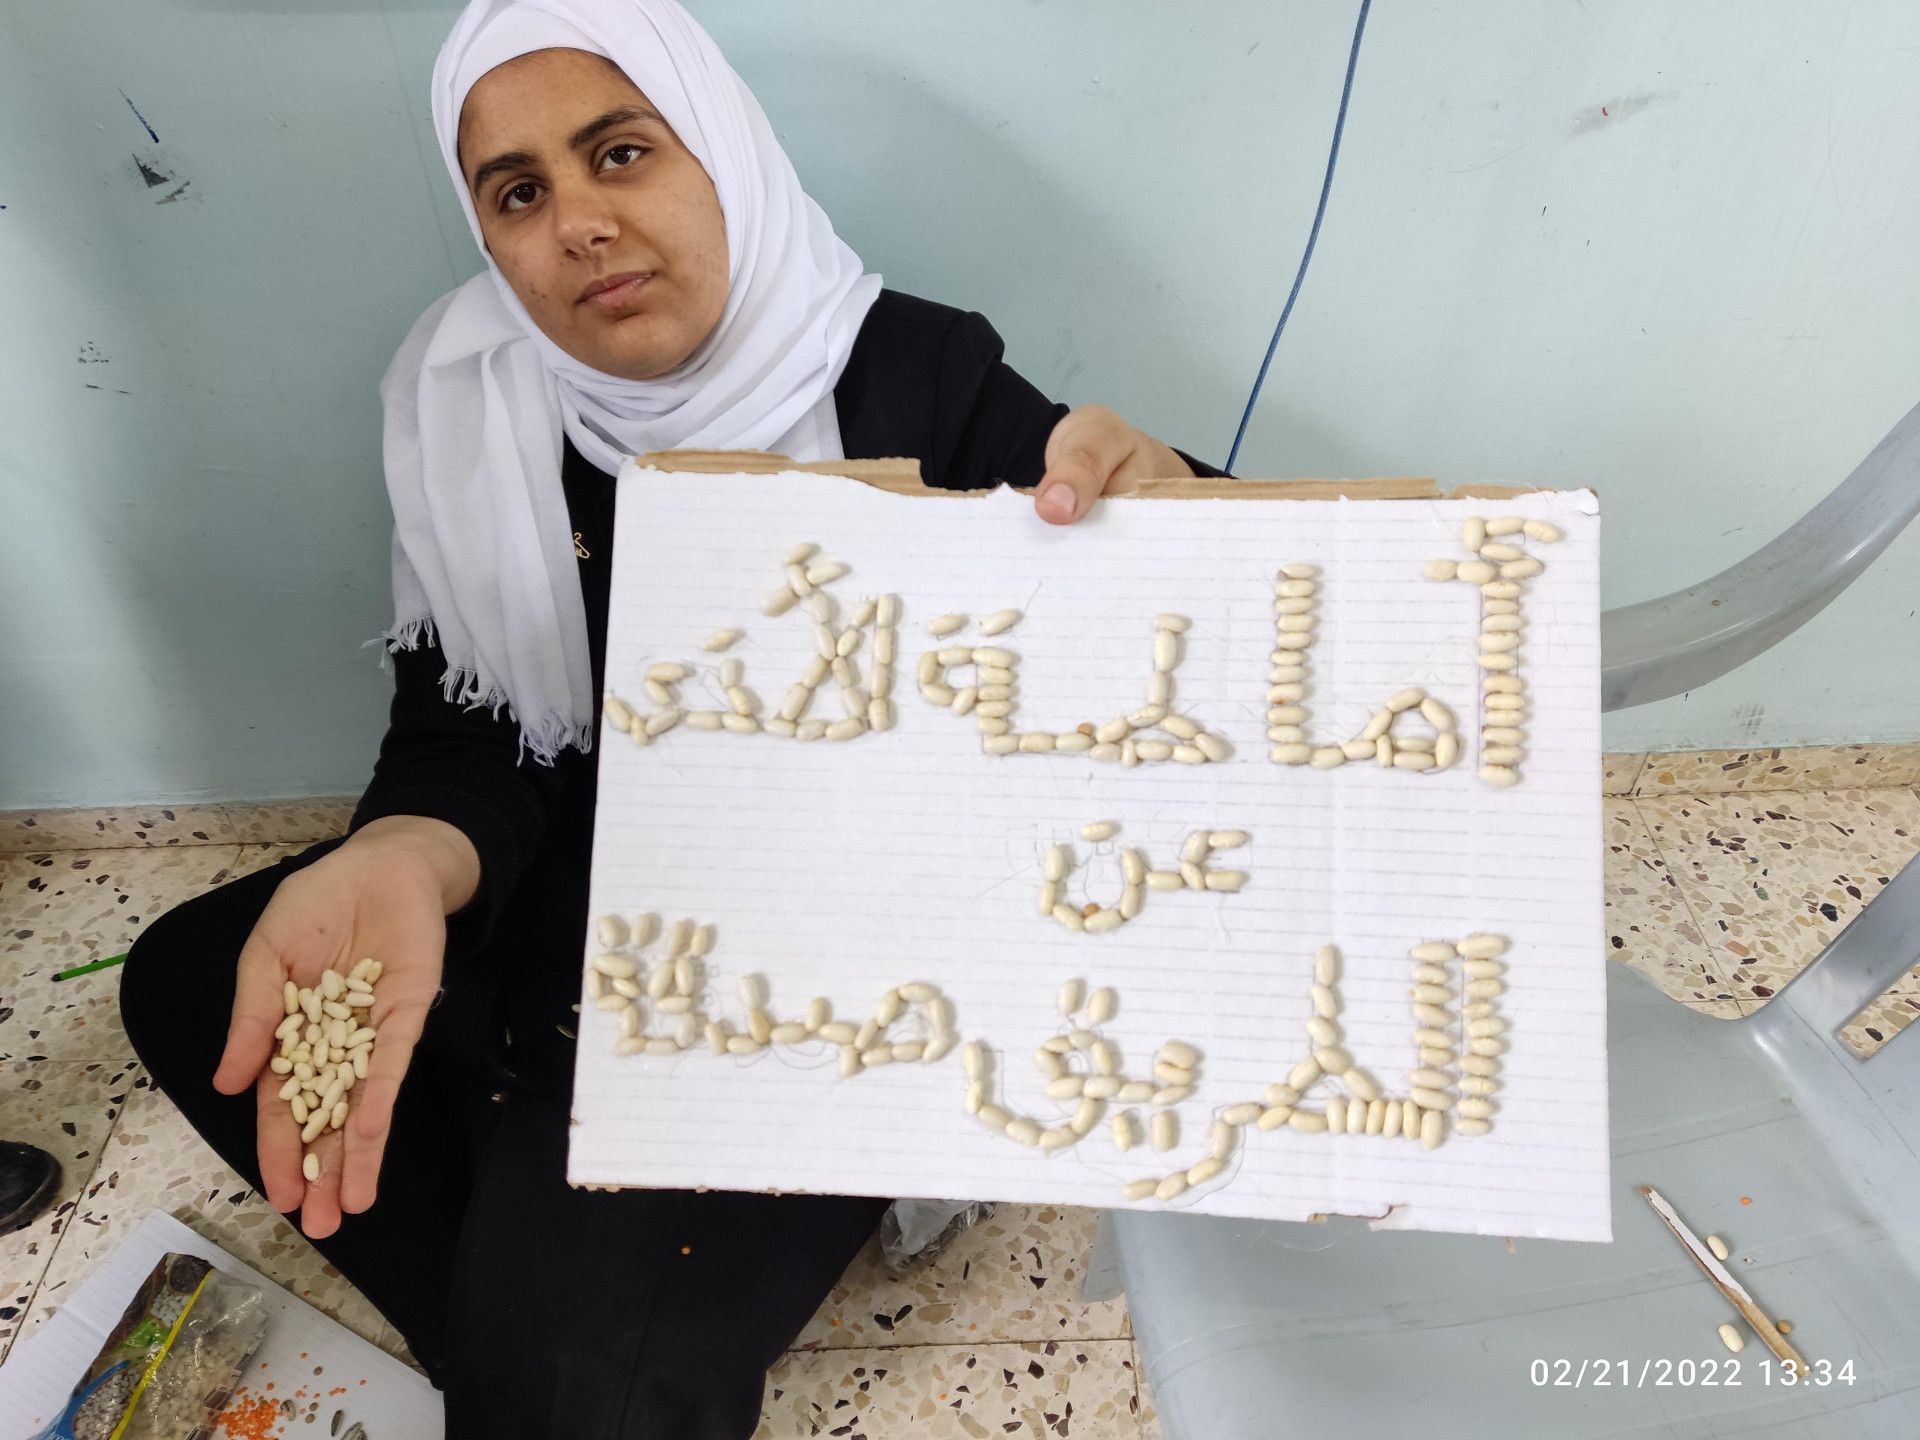 أماطة الأذى
عن
الطريق صدقة
02/21/2022 13:34